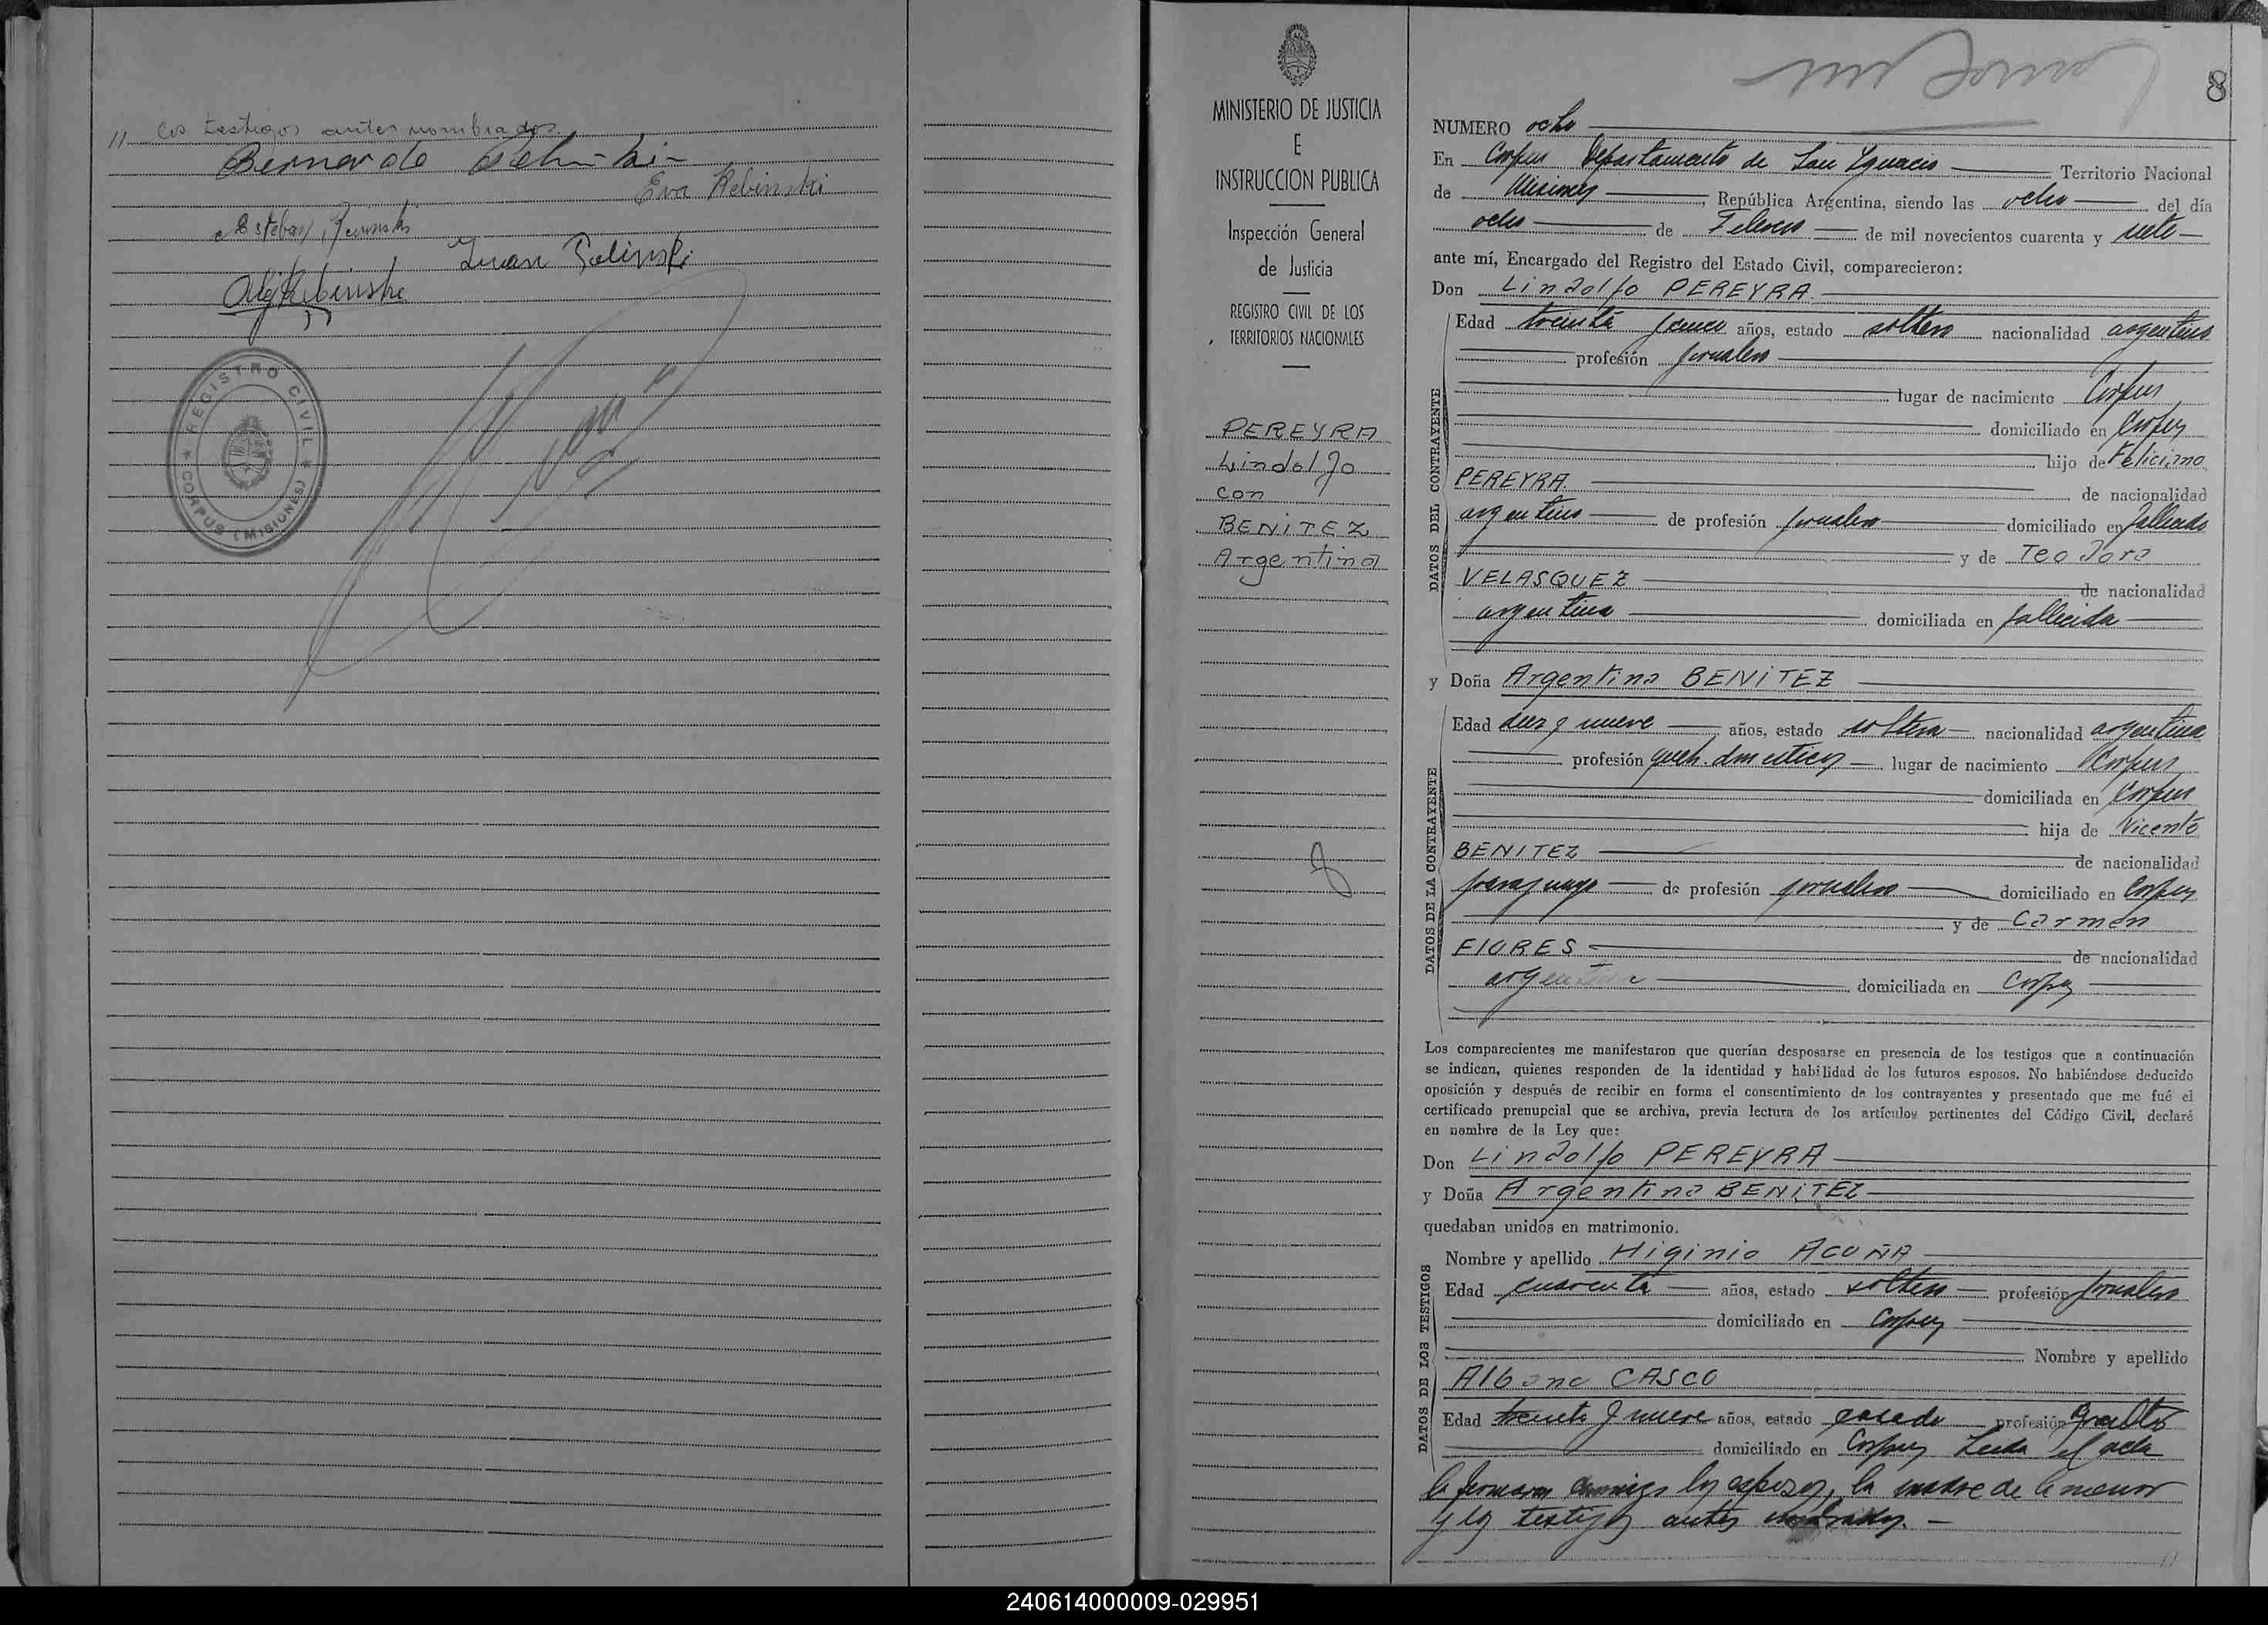 // los testigos antes nombrados.
Bernardo
Eva Rebinski
Esteban
Juan Galinski
REGISTRO CIVIL
CORPUS (MISIONES)
MINISTERIO DE JUSTICIA
E
INSTRUCCION PUBLICA
Inspección General
de Justicia
REGISTRO CIVIL DE LOS
TERRITORIOS NACIONALES
PEREYRA
Lindolfo
con
BENITEZ
Argentina
8
NUMERO ocho
En Corpus Departamento de San Ignacio Territorio Nacional
de Misiones, República Argentina, siendo las ocho del día
ocho de Febrero de mil novecientos cuarenta y siete
ante mí, Encargado del Registro del Estado Civil, comparecieron:
Don Lindolfo PEREYRA
DATOS DEL CONTRAYENTE
Edad treinta años, estado soltero nacionalidad argentino
profesión jornalero
lugar de nacimiento Corpus
domiciliado en Corpus
hijo de Feliciano
PEREYRA de nacionalidad
argentino de profesión jornalero domiciliado en fallecido
y de Teodora
VELASQUEZ de nacionalidad
argentina domiciliada en fallecida
y Doña Argentina BENITEZ
DATOS DE LA CONTRAYENTE
Edad diez y nueve años, estado soltera nacionalidad argentina
profesión queh. domesticos lugar de nacimiento Corpus
domiciliada en Corpus
hija de Vicente
BENITEZ de nacionalidad
paraguayo de profesión jornalero domiciliado en Corpus
y de Carmen
FlORES de nacionalidad
argentina domiciliada en Corpus
Los comparecientes me manifestaron que querían desposarse en presencia de los testigos que a continuación
se indican, quienes responden de la identidad y habilidad de los futuros esposos. No habiéndose deducido
oposición y después de recibir en forma el consentimiento de los contrayentes y presentado que me fué el
certificado prenupcial que se archiva, previa lectura de los artículos pertinentes del Código Civil, declaré
en nombre de la Ley que:
Don Lindolfo PEREYRA
y Doña Argentina BENITEZ
quedaban unidos en matrimonio.
DATOS DE LOS TESTIGOS
Nombre y apellido Higinio ACUÑA
Edad cuarenta años, estado soltero profesión jornalero
domiciliado en Corpus
Nombre y apellido
Albano CASCO
Edad treinta y nueve años, estado casado profesión
domiciliado en Corpus Leida el acta
la firmaron conmigo los esposos, la madre de la menor
y los testigos antes nombrados. -
//
240614000009-029951